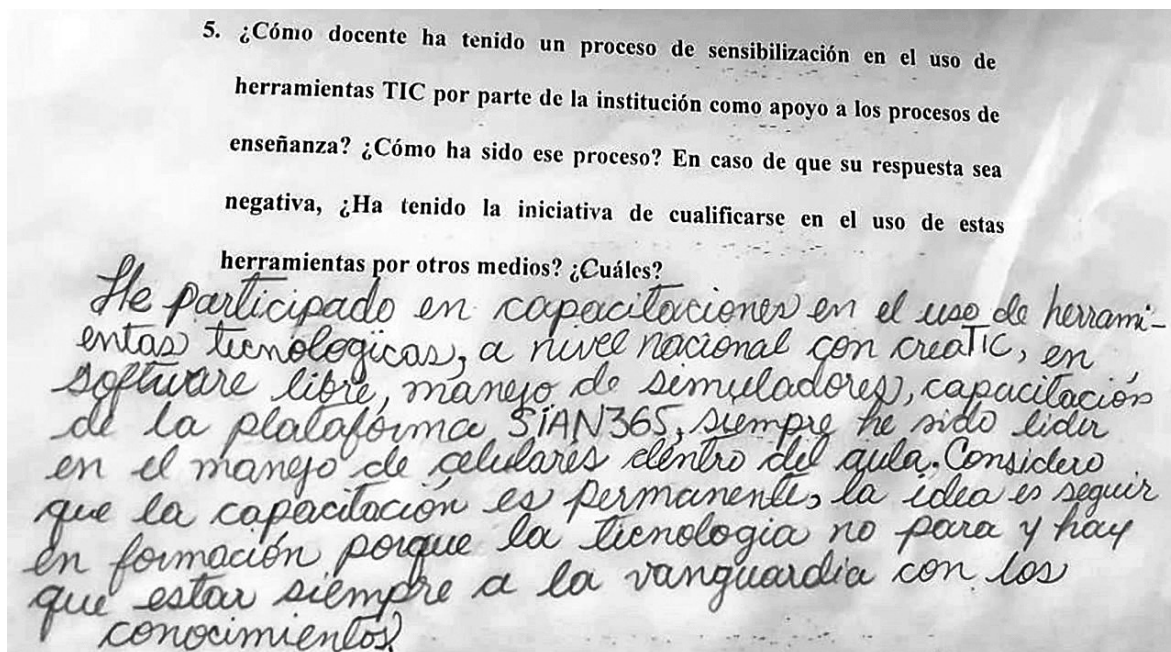 5. ¿Cómo docente ha tenido un proceso de sensibilización en el uso de
herramientas TIC por parte de la institución como apoyo a los procesos de
enseñanza? ¿Cómo ha sido ese proceso? En caso de que su respuesta sea
negativa, ¿Ha tenido la iniciativa de cualificarse en el uso de estas
herramientas por otros medios? ¿Cuáles?
He participado en capacitaciones en el uso de herrami-
entas tecnológicas, a nivel nacional con creaTIC, en
software libre, manejo de simuladores, capacitación
de la plataforma SIAN365, siempre he sido lider
en el manejo de celulares dentro del aula. Considero
que la capacitación es permanente, la idea es seguir
en formación porque la tecnologia no para y hay
que estar siempre a la vanguardia con los
conocimientos.